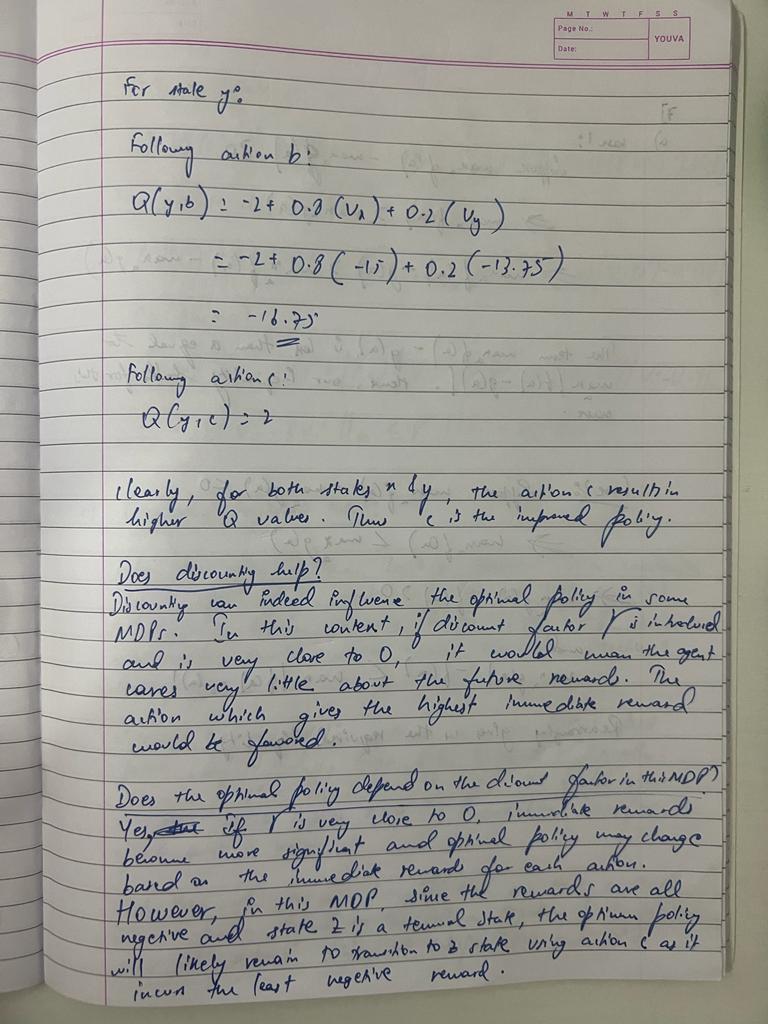 M T W T F S S
Page No.:
Date:
YOUVA
For state y:
Following action b:
Q(y,b) = -2 + 0.8 (Vx) + 0.2 (Vy)
= -2 + 0.8 (-15) + 0.2 (-13.75)
= -16.75
Following action c:
Q(y,c) = 2
Clearly, for both states x & y, the action c results in
higher Q values. Thus c is the improved policy.
Does discounting help?
Discounting can indeed influence the optimal policy in some
MDPs. In this context, if discount factor γ is introduced
and is very close to 0, it would mean the agent
cares very little about the future rewards. The
action which gives the highest immediate reward
would be favored.
Does the optimal policy depend on the discount factor in this MDP?
Yes, If γ is very close to 0, immediate rewards
become more significant and optimal policy may change
based on the immediate rewards for each action.
However, in this MDP, since the rewards are all
negetive and state Z is a terminal state, the optimum policy
will likely remain to transition to z state using action c as it
incurs the least negetive reward.